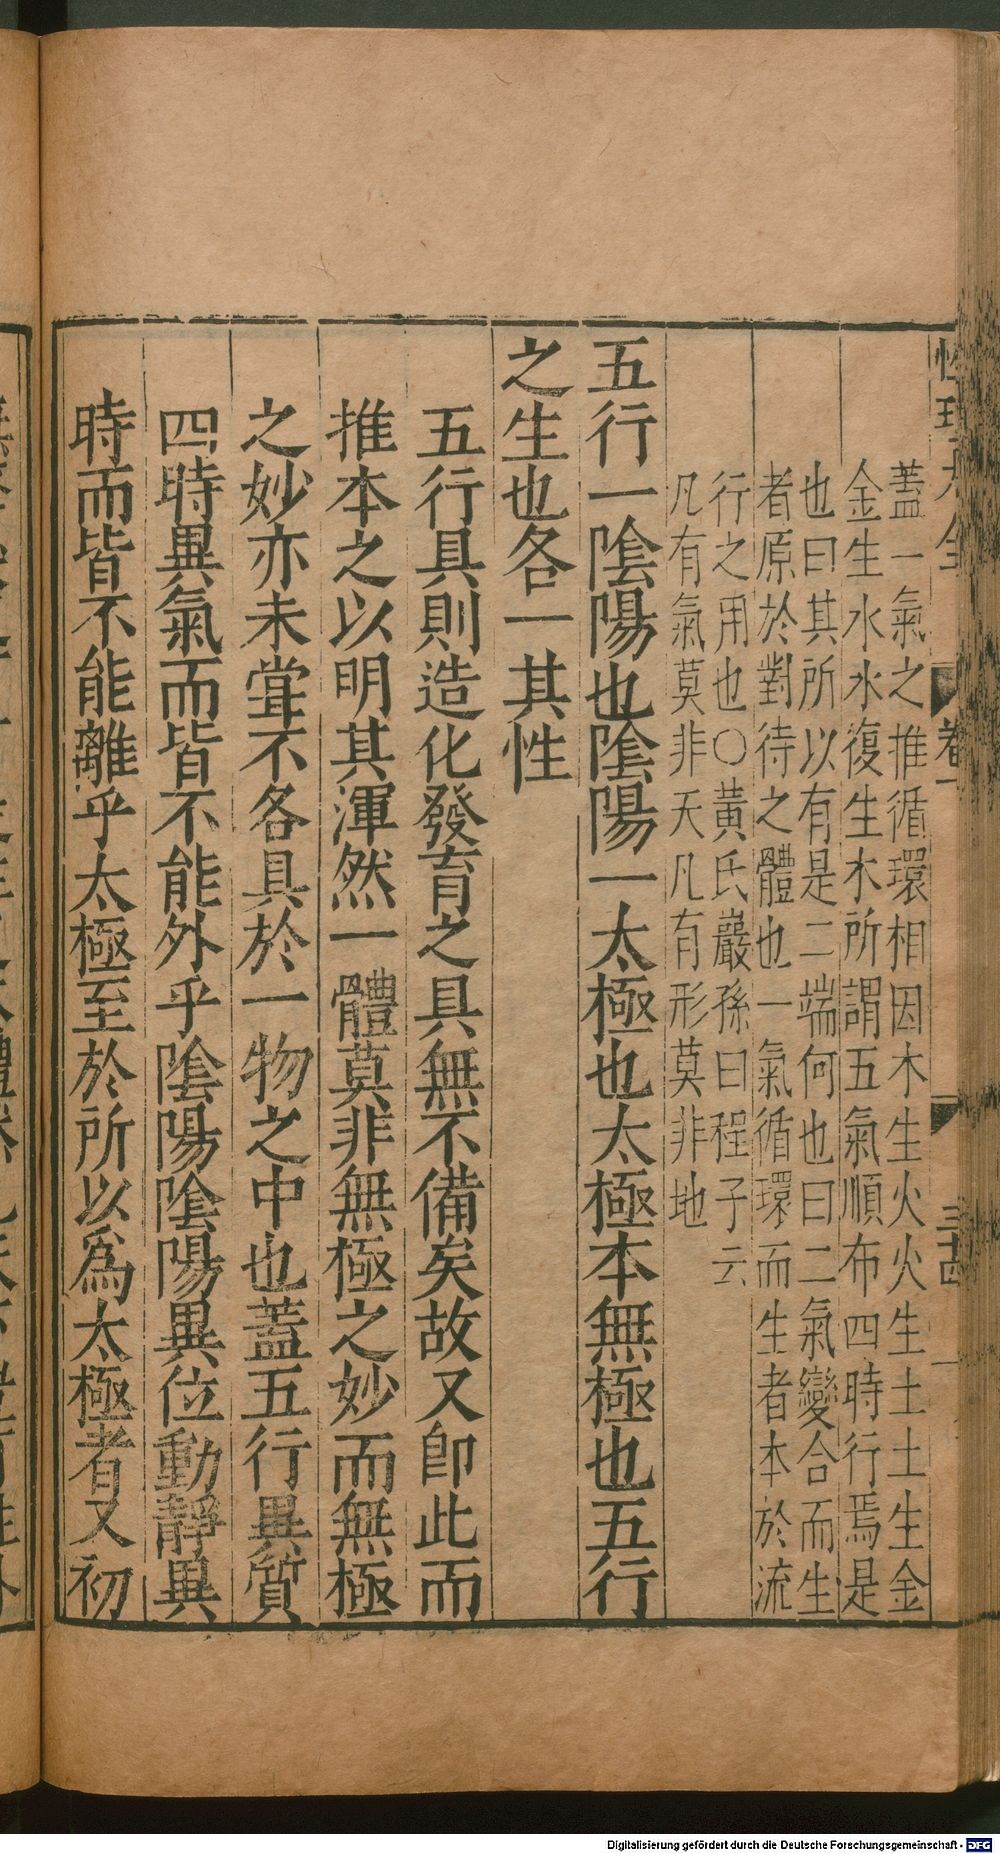 性理大全 卷一 三十四
蓋一氣之推循環相因木生火火生土土生金
金生水水復生木所謂五氣順布四時行焉是
也曰其所以有是二端何也曰二氣變合而生
者原於對待之體也一氣循環而生者本於流
行之用也○黃氏巖孫曰程子云
凡有氣莫非天凡有形莫非地
五行一陰陽也陰陽一太極也太極本無極也五行
之生也各一其性
五行具則造化發育之具無不備矣故又卽此而
推本之以明其渾然一體莫非無極之妙而無極
之妙亦未甞不各具於一物之中也蓋五行異質
四時異氣而皆不能外乎陰陽陰陽異位動靜異
時而皆不能離乎太極至於所以爲太極者又初
Digitalisierung gefördert durch die Deutsche Forschungsgemeinschaft - DFG